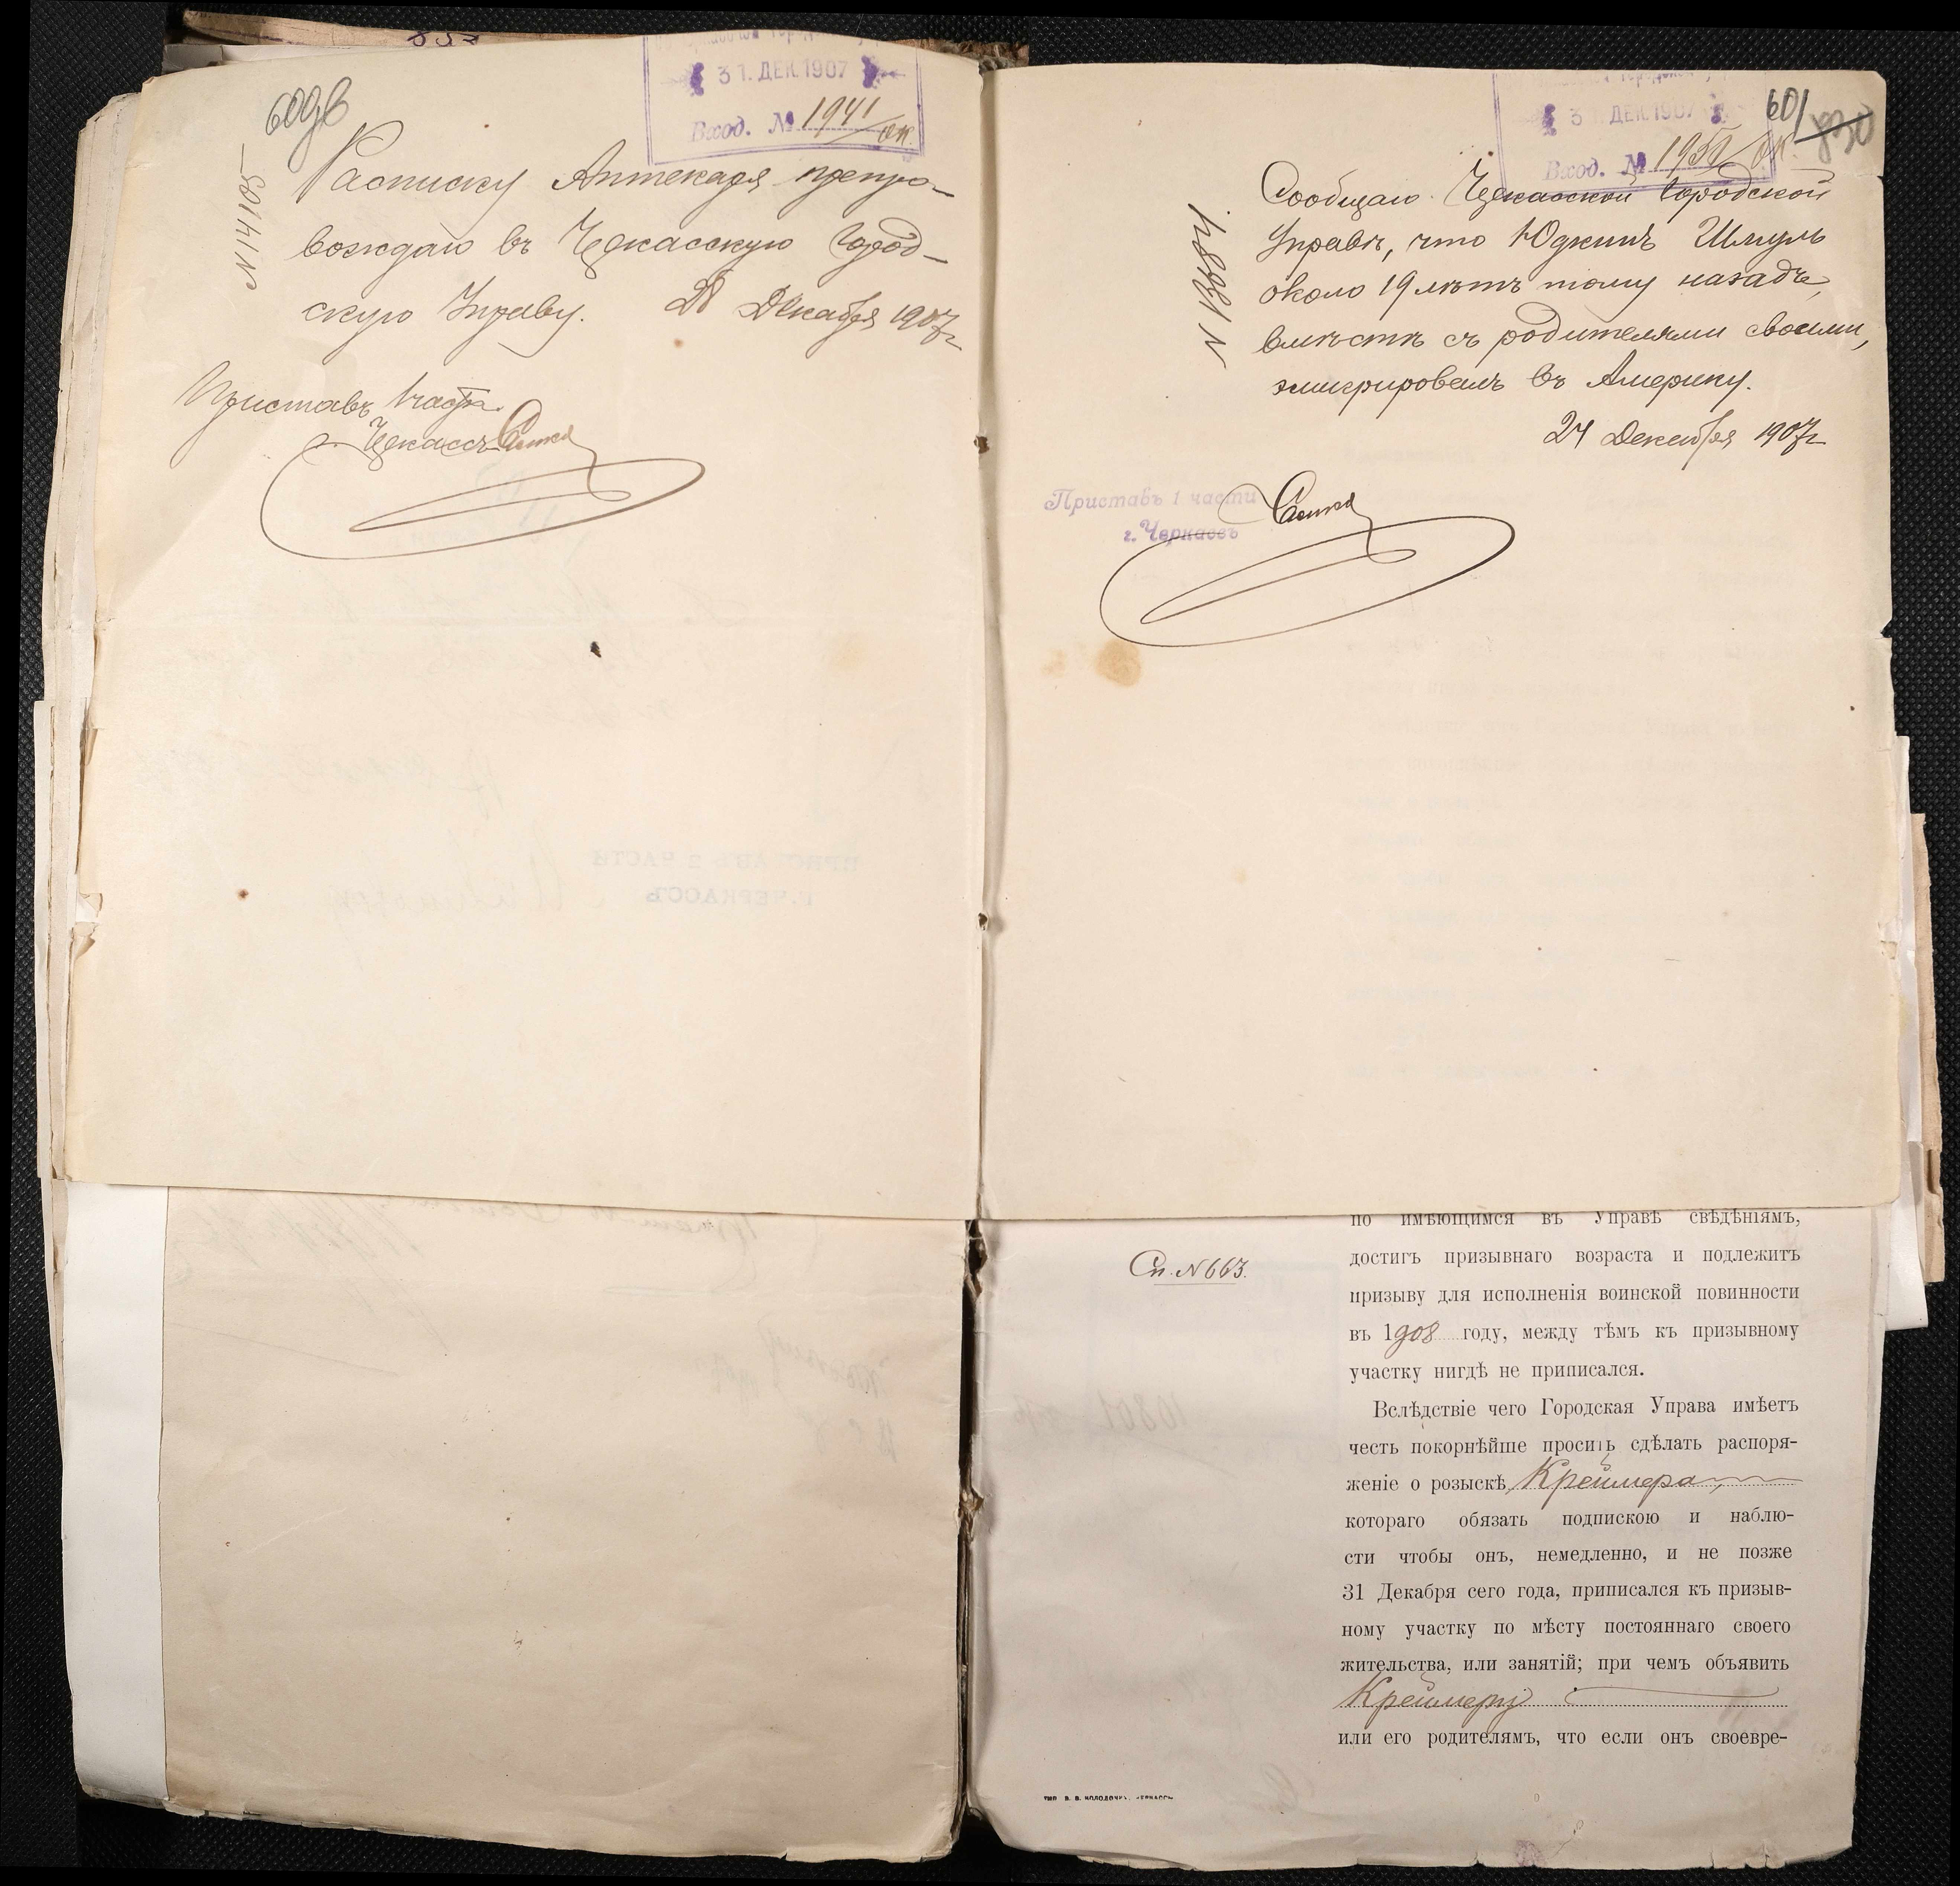 600об
31. ДЕК. 1907
Вход. № 1941/вп.
N 14105
Расписку Аптекаря препро-
вождаю въ Черкасскую Город-
скую Управу. 28 Декабря 1907 г
Приставъ 1 части
г. Черкассъ
601
830
31. ДЕК. 1907
Вход. № 1950
N 13984.
Сообщаю Черкасской Городской
Управѣ, что Юдкинъ Шмуль
около 19 лѣтъ тому назадъ,
вмѣстѣ съ родителями своими,
эмигрировалъ въ Америку.
24 Декабря 1907 г
Приставъ 1 части
г. Черкассъ
ПРИСТАВЪ 2 ЧАСТИ
Г. ЧЕРКАССЪ
по имѣющимся въ Управѣ свѣдѣніямъ,
Сп. N 663.
достигъ призывнаго возраста и подлежитъ
призыву для исполненія воинской повинности
въ 1908 году, между тѣмъ къ призывному
участку нигдѣ не приписался.
Вслѣдствіе чего Городская Управа имѣетъ
честь покорнѣйше просить сдѣлать распоря-
женіе о розыскѣ Креймера,
котораго обязать подпискою и наблю-
сти чтобы онъ, немедленно, и не позже
31 Декабря сего года, приписался къ призыв-
ному участку по мѣсту постояннаго своего
жительства, или занятій; при чемъ объявить
Креймеру
или его родителямъ, что если онъ своевре-